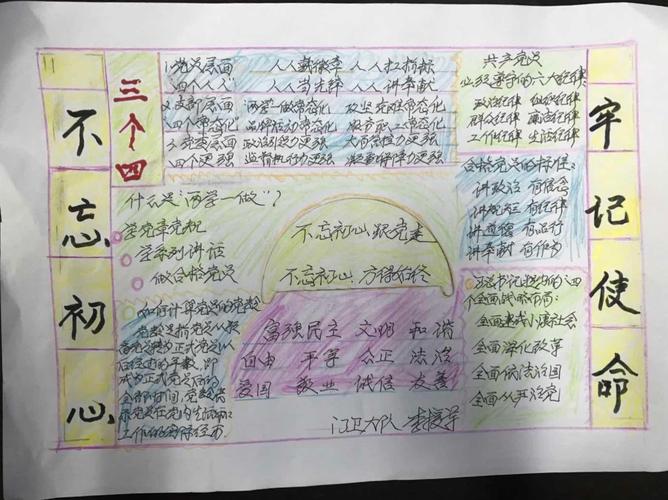 不忘初心
三个四
1.党员层面 人人戴徽章 人人扛指标
四个人人 人人当先锋 人人讲奉献
2.支部层面 两学一做常态化 攻坚克难常态化
四个常态化 品牌活动常态化 服务职工常态化
3.党委层面 政治引领力更强
四个更强 监督执行力更强 凝聚保障力更强
共产党员
必须遵守的六大纪律:
政治纪律 组织纪律
群众纪律 廉洁纪律
工作纪律 生活纪律
合格党员的标准:
讲政治 有信念
讲规矩 有纪律
讲道德 有品行
讲奉献 有作为
什么是"两学一做"?
学党章党规
学系列讲话
做合格党员
不忘初心 跟党走
不忘初心 方得始终
如何计算党员的党龄
党龄是指党员从预
备党员转为正式党员以
后经过的年数,即
成为正式党员后的
全部时间,党龄表
示党员在党内生活和
工作的实际经历
富强 民主 文明 和谐
自由 平等 公正 法治
爱国 敬业 诚信 友善
门卫大队
总书记提出的四
个全面战略布局:
全面建成小康社会
全面深化改革
全面依法治国
全面从严治党
牢记使命